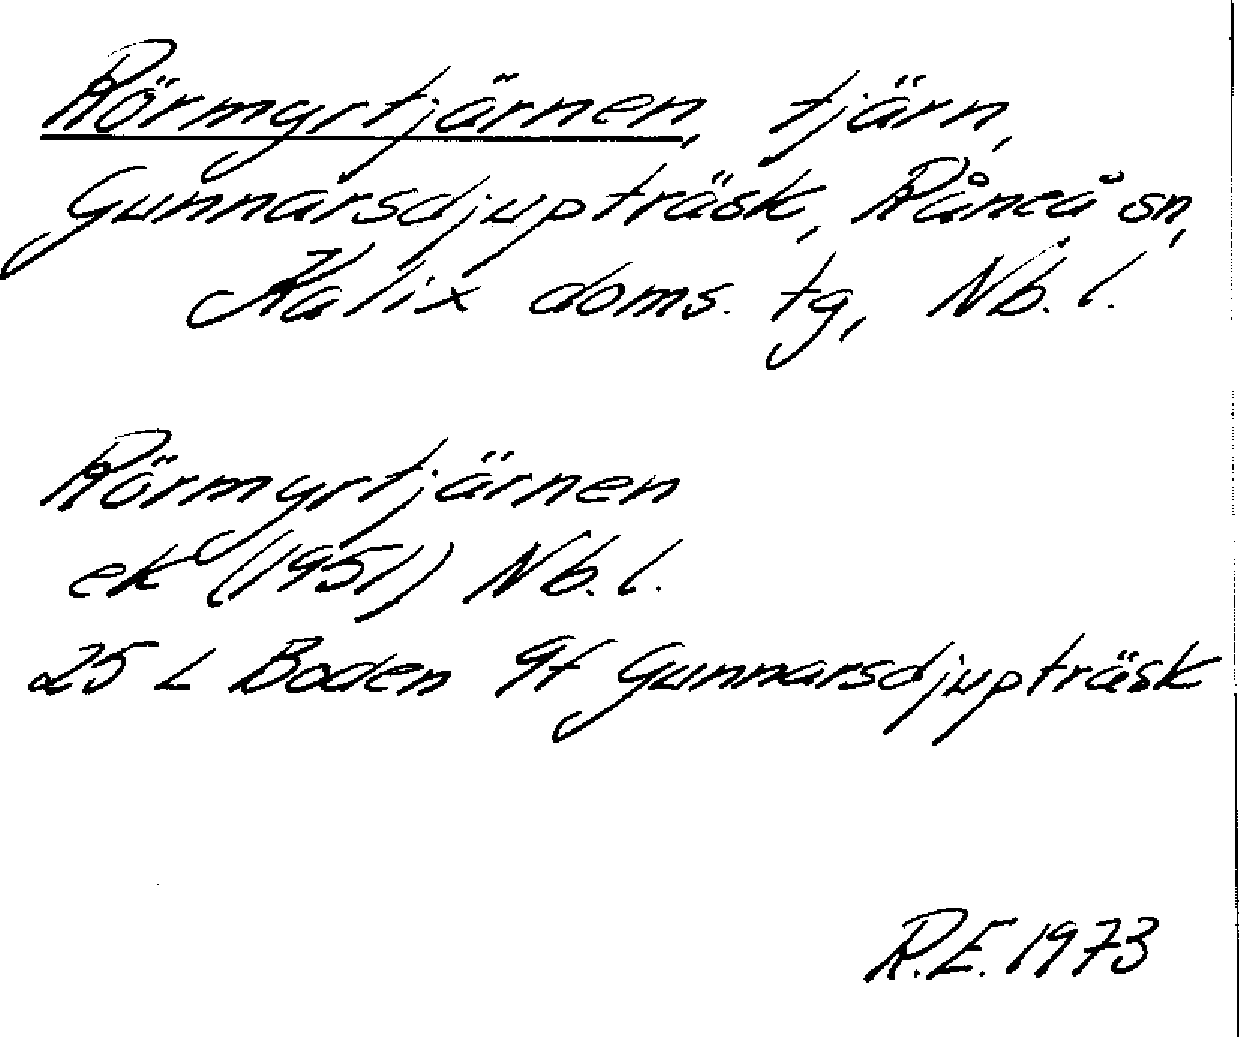 Rörmyrtjärnen, tjärn,
Gunnarsdjupträsk, Råneå sn,
Kalix doms. tg, Nb. l.
Rörmyrtjärnen
ek (1951) Nb. l.
25 L Boden 9f Gunnarsdjupträsk
R.E. 1973